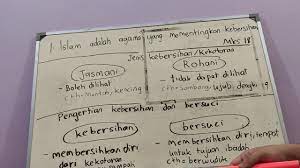 1. Islam adalah agama yang mementingkan kebersihan
Mks 18
Jenis kebersihan/kekotoran
Jasmani
Rohani
- Boleh dilihat
- tidak dapat dilihat
cth: muntah, kencing
cth: Sombong, ujub, dengki
Pengertian kebersihan dan bersuci
kebersihan
bersuci
membersihkan diri
membersihkan diri, tempat
dari kekotoran
untuk tujuan ibadat
cth: berwuduk